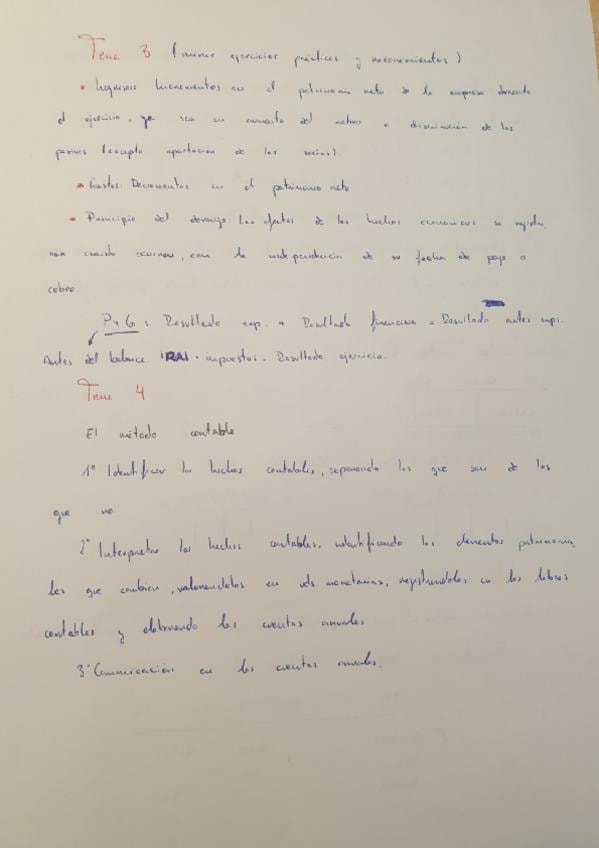 Tema 3 (mirar ejercicios prácticos y razonamientos)
• Ingresos: Incrementos en el patrimonio neto de la empresa durante
el ejercicio, ya sea en aumento del activo o disminución de los
pasivos (excepto aportación de los socios)
• Gastos: Decrementos en el patrimonio neto
• Principio del devengo: Los efectos de los hechos económicos se registra
rán cuando ocurran, con la independencia de su fecha de pago o
cobro
PyG: Resultado exp. + Resultado financiero = Resultado antes imp.
Antes del balance. RAI - impuestos = Resultado ejercicio.
Tema 4
El método contable
1º Identificar los hechos contables, separando los que son de los
que no
2º Interpretar los hechos contables, identificando los elementos patrimonia
les que cambian, valorandolos en uds monetarias, registrandolos en los libros
contables y obteniendo las cuentas anuales
3º Comunicación en las cuentas anuales.